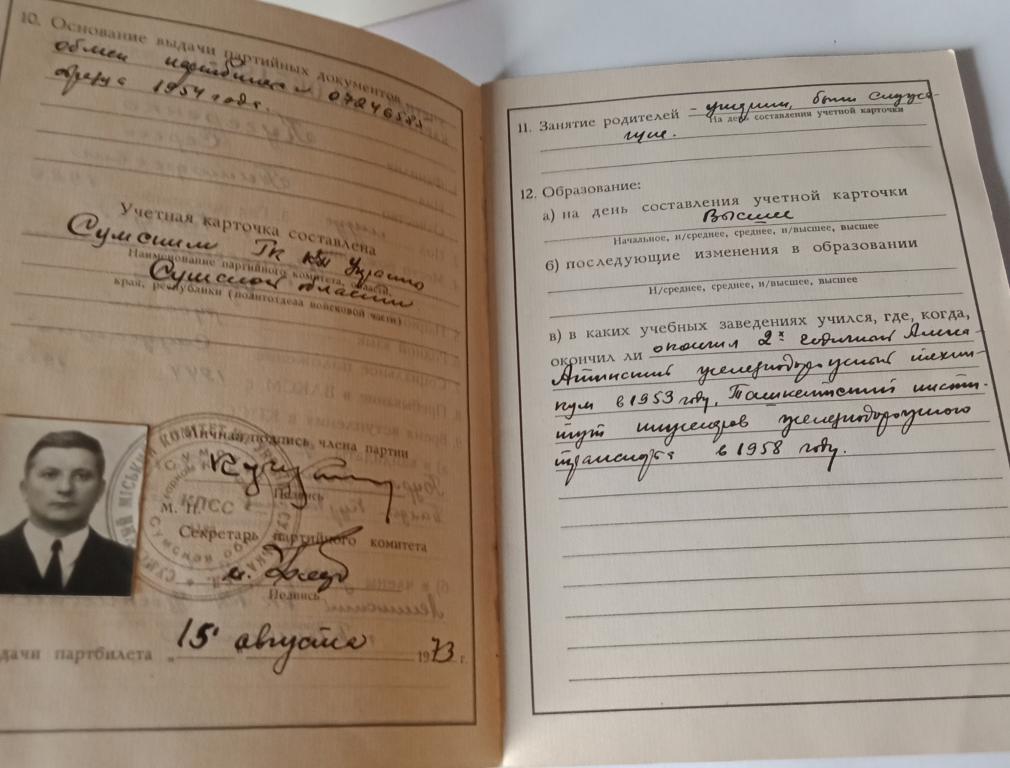 10. Основание выдачи партийных документов
обмен партбилета № 07246585
образца 1954 года.
Учетная карточка составлена
Сумским ГК КП Украины
Наименование партийного комитета, области,
Сумской области
края, республики (политотдела войсковой части)
Личная подпись члена партии
Подпись
М. П.
КПСС
Секретарь партийного комитета
Подпись
дачи партбилета „ 15 " августа 1973 г.
11. Занятие родителей - умерли, были служа-
На день составления учетной карточки
щие.
12. Образование:
а) на день составления учетной карточки
Высшее
Начальное, н/среднее, среднее, н/высшее, высшее
б) последующие изменения в образовании
Н/среднее, среднее, н/высшее, высшее
в) в каких учебных заведениях учился, где, когда,
окончил ли окончил 2х годичный Алма-
Атинский железнодорожный техни-
кум в 1953 году, Ташкентский инсти-
тут инженеров железнодорожного
транспорта в 1958 году.